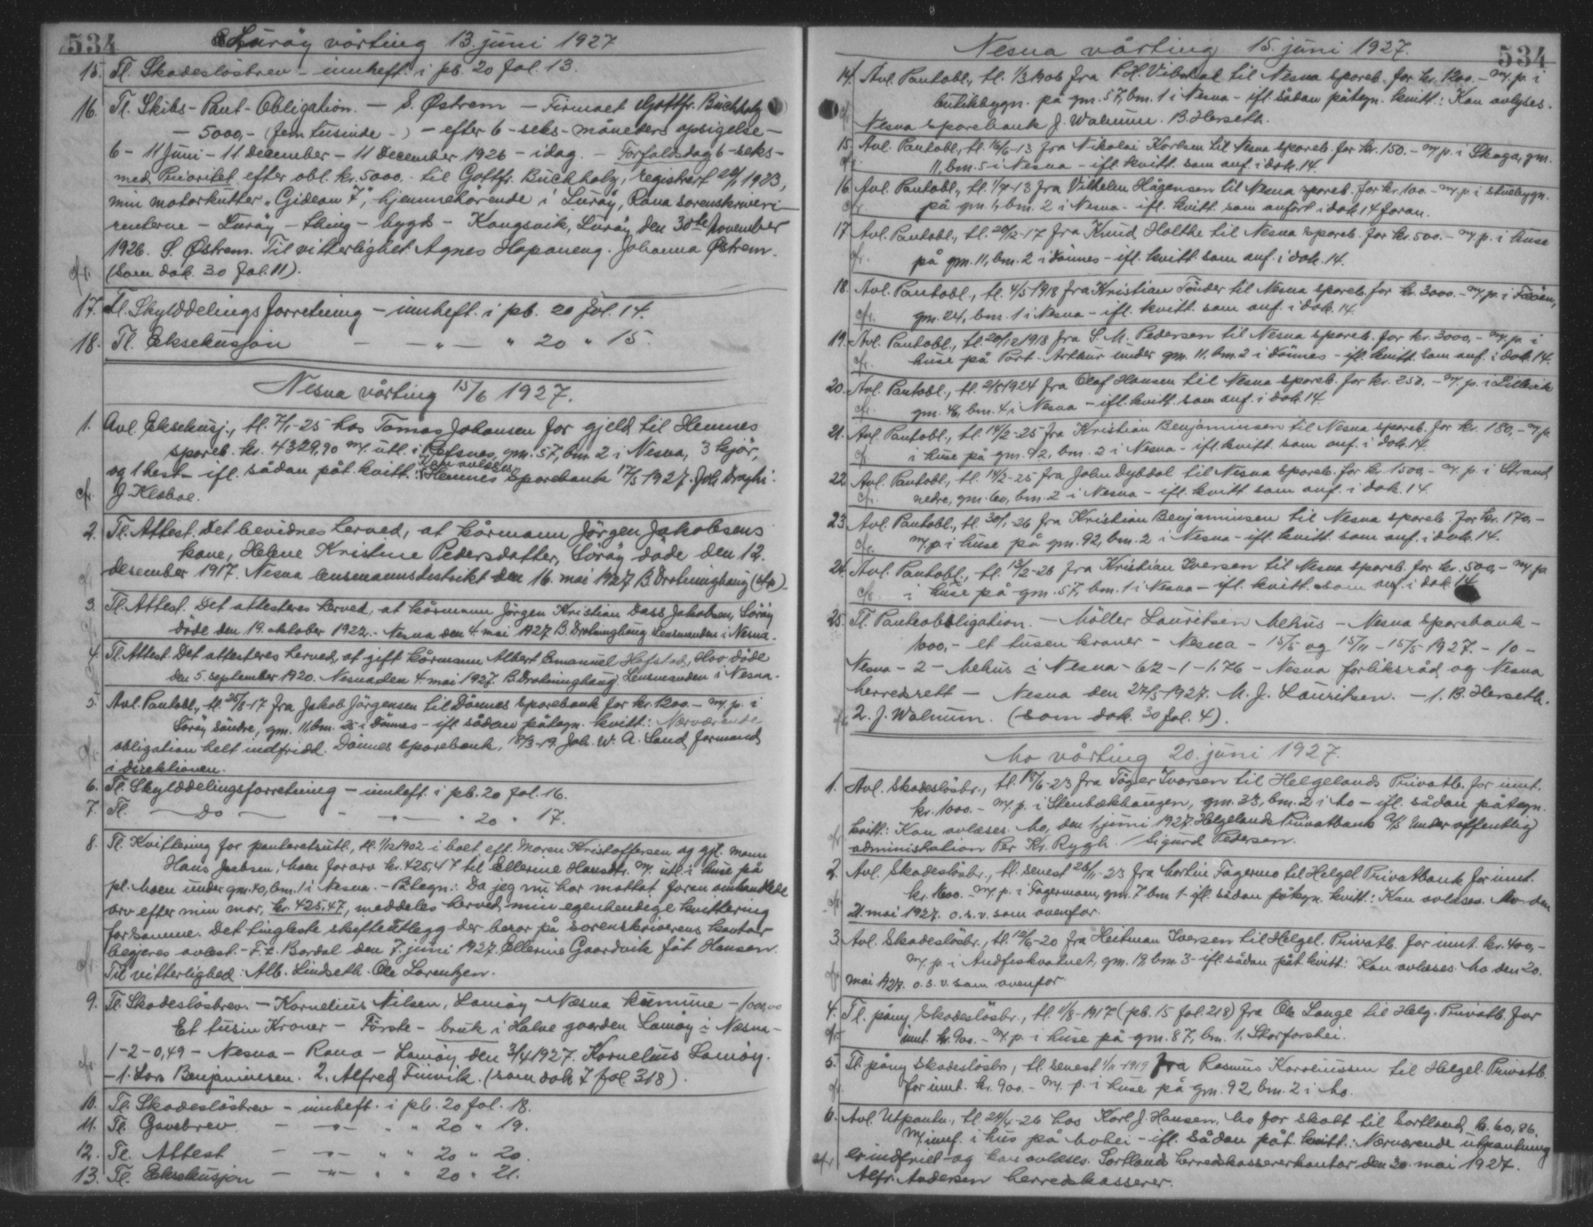 534
Lurøy vårting 13. juni 1927
15. Tl. Skadesløsbrev - innheft. i pb. 20 fol. 13.
16. Tl. Skibs-Pant-Obligation. - S. Østrem - Firmaet Gottfr. Büchholz
- 5000,- (fem tusinde -) - efter 6-seks-måneders opsigelse -
6 - 11 Juni - 11 december - 11 december 1926 - idag. - Forfaldsdag 6-seks-
med Prioritet efter obl. kr. 5000.- til Gottfr. Büchholz, registrert
min motorkutter "Gideon 7", hjemmehørende i Lurøy, Rana sorenskriveri-
renterne - Lurøy - thing - bygd - Kongsvik, Lurøy den 30te November
1926. S. Østrem. Til vitterlighet Agnes Hopaneng. Johanna Østrem.
(Som dok. 30 fol. 11).
17. Tl. Skylddelings forretning - innheft. i pb. 20 fol. 14.
18. Tl. Eksekusjon - - " - " 20 " 15.
Nesna vårting 15/6 1927.
1. Avl. Eksekusj., tl. 7/1-25 hos Tomas Johansen for gjeld til Hemnes
spareb. kr. 4329,90 m/ utl. i Refsnes, gm. 57, bm. 2 i Nesna, 3 kjør,
og 1 hest - ifl. sådan påt. kvitt.: Kan avløses Hemnes Sparebank 17/5 1927. Joh.
J Klæboe.
2. Tl. Attest. Det bevidnes herved, at kårmann Jørgen Jakobsens
kone, Helene Kristine Pedersdatter, Sørøy døde den 12.
desember 1917. Nesna lensmannsdistrikt den 16. mai 1927 B Drotninghaug (stp).
3. Tl. Attest. Det attesteres herved, at kårmann Jørgen Kristian Dass Jakobsen, Sørøy
døde den 19. oktober 1922. - Nesna den 4. mai 1927. B Drotninghaug Lensmanden i Nesna.
4. Tl. Attest Det attesteres herved, at gift kårmann Albert Emanuel Hofstad, Hov døde
den 5. september 1920. Nesna den 4. mai 1927. B Drotninghaug Lensmanden i Nesna.
5. Avl. Pantobl., tl. 25/8-17 fra Jakob Jørgensen til Dønnes Sparebank for kr. 1200.- m/ p. i
Sørøy søndre, gm. 11, bm. 2 i Dønnes - ifl. sådan påtegn. kvitt.: Nærværende
obligation helt indfridd. Dønnes Sparebank, 18/3-19. Joh. W. A. Sand, formand
i direktionen.
6. Tl. Skylddelingsforretning - innheft. i pb. 20 fol. 16.
7. Tl. - Do - - " - " 20 " 17.
8. Tl. Kvittering for panteretsutl., tl. 1/12 1902 i boet eft. Maren Kristoffersen og gjl. mann
Hans Jensen, Moen for arv kr. 425,47 til Ellerine Hansdtr. m/ utl. i huse på
pl. Moen under gm. 70, bm. 1 i Nesna. - Påtegn.: Da jeg nu har mottat foran omhandlede
arv efter min mor, kr. 425,47, meddeles herved min egenhendige kvittering
for samme. Det tinglæste skifteutlegg der beror på sorenskriverens kontor
begjeres avlest - F. t. Bardal den 7. juni 1927. Ellerine Gaardvik født Hansen.
Til vitterlighed: Alb. Lindseth. Ole Lorentzen.
9. Tl. Skadesløsbrev. - Kornelius Nilsen, Lamøy - Næsna kumune - 1000,00
Et tusin Kroner - Første - bruk i Halve gaarden Lamøy i Næsna -
1-2-0,49 - Nesna - Rana - Lamøy den 3/4 1927. Kornelius Lamøy.
- 1. Lars Benjaminsen. 2. Alfred Finvik. (som dok 7 fol. 318).
10. Tl. Skadesløsbrev - innheft. i pb. 20 fol. 18.
11. Tl. Gavebrev. - - " - " " 20 " 19.
12. Tl. Attest - - " - " " 20 " 20.
13. Tl. Eksekusjon - - " - " 20 " 21.
Nesna vårting 15. juni 1927.
534
14. Avl. Pantobl., tl. 1/3 1906 fra P. A. Vibstad til Nesna spareb. for kr. 1200.- m/ p. i
butikkbygn. på gm. 57, bm. 1 i Nesna - ifl. sådan påtegn. kvitt.: Kan avlyses.
Nesna sparebank J. Walnum. B. Herseth.
15. Avl. Pantobl., tl. 14/6-13 fra Nikolai Korben til Nesna spareb. for kr. 150.- m/ p. i Skaga, gm.
11, bm. 5 i Nesna - ifl. kvitt. som anf. i dok. 14.
16. Avl. Pantobl., tl. 1/9-13 fra Vilhelm Hågensen til Nesna spareb. for kr. 100.- m/ p. i stuebygn.
på gm. 1, bm. 2 i Nesna - ifl. kvitt. som anført i dok. 14 foran.
17. Avl. Pantobl., tl. 20/12-17 fra Knud Holthe til Nesna spareb. for kr. 500.- m/ p. i huse
på gm. 11, bm. 2 i Dønnes - ifl. kvitt. som anf. i dok. 14.
18. Avl. Pantobl., tl. 4/5 1918 fra Kristian Tønder til Nesna spareb. for kr. 3000.- m/ p. i
gm. 24, bm. 1 i Nesna - ifl. kvitt. som anf. i dok. 14.
19. Avl. Pantobl., tl. 20/12 1918 fra S. M. Pedersen til Nesna spareb. for kr. 3000,- m/ p. i
huse på Port-Arthur under gm. 11, bm. 2 i Dønnes - ifl. kvitt. som anf. i dok. 14.
20. Avl. Pantobl., tl. 2/5 1924 fra Olaf Hansen til Nesna spareb. for kr. 250.- m/ p. i Litlevik
gm. 48, bm. 4 i Nesna - ifl. kvitt. som anf. i dok. 14.
21. Avl. Pantobl., tl. 14/2-25 fra Kristian Benjaminsen til Nesna spareb. for kr. 180,- m/ p.
i huse på gm. 92, bm. 2 i Nesna - ifl. kvitt. som anf. i dok. 14.
22. Avl. Pantobl., tl. 14/2-25 fra John Dybdal til Nesna spareb. for kr. 1500,- m/ p. i Strand
nedre, gm. 60, bm. 2 i Nesna - ifl. kvitt. som anf. i dok. 14.
23. Avl. Pantobl., tl. 30/1-26 fra Kristian Benjaminsen til Nesna spareb. for kr. 170,-
m/ p. i huse på gm. 92, bm. 2 i Nesna - ifl. kvitt. som anf. i dok. 14.
24. Avl. Pantobl., tl. 13/2-26 fra Kristian Iversen til Nesna spareb. for kr. 500,- m/ p.
i huse på gm. 57, bm. 1 i Nesna - ifl. kvitt. som anf. i dok. 14.
25. Tl. Panteobligation. - Møller Lauritsen Mehus - Nesna Sparebank -
1000,- et tusen kroner - Nesna - 15/5 og 15/11 - 15/5 1927. - 10 -
Nesna - 2 - Mehus i Nesna - 62 - 1 - 1.76 - Nesna forliksråd og Nesna
herredsrett - Nesna den 27/5 1927. M. J. Lauritsen. - 1. B. Herseth.
2. J. Walnum. (som dok. 30 fol. 4).
Mo vårting 20. juni 1927.
1. Avl. Skadesløsbr., tl. 15/6-23 fra Tøger Ivarsen til Helgelands Privatb. for innt.
kr. 1000.- m/ p. i Stenbækhaugen, gm. 23, bm. 2 i Mo - ifl. sådan påtegn.
kvitt.: Kan avløses. Mo, den 1 juni 1927 Helgelands Privatbank A/S Under offentlig
administration Per Kr. Rygh. / Sigurd Pedersen.
2. Avl. Skadesløsbr., tl. senest 26/11-23 fra Martin Fagermo til Helgel. Privatbank for innt.
kr. 1600.- m/ p. i Fagermoen, gm. 7 bm 1 - ifl. sådan påtegn. kvitt.: Kan avløses. Mo den
21. mai 1927. o.s.v. som ovenfor.
3. Avl. Skadesløsbr., tl. 12/6-20 fra Heitman Iversen til Helgel. Privatb. for innt. kr. 400,-
m/ p. i Andfiskvatnet, gm. 19, bm. 3 - ifl. sådan påt. kvitt: Kan avløses Mo den 20.
mai 1927. o.s.v. som ovenfor
4. Tl. påny Skadesløsbr., tl. 1/8-1917 (pb. 15 fol. 218) fra Ole Lange til Helg. Privatb. for
innt. kr. 900.- m/ p. i huse på gm. 87, bm. 1, Storforshei.
5. Tl. påny Skadesløsbr., tl. senest 1/11-1919 fra Rasmus Korneliussen til Helgel. Privatb.
for innt. kr. 900.- m/ p. i huse på gm. 92, bm. 2 i Mo.
6. Avl. Utpantn., tl. 24/4-26 hos Karl J. Hansen, Mo for skatt til Sortland, kr. 60,86.
m/ innf. i hus på Mohei - ifl. sådan påt. kvitt.: Nærværende utpantning
er indfried og kan avløses. Sortlands herredskassererkontor den 30. mai 1927.
Alfr. Andersen herredskasserer.